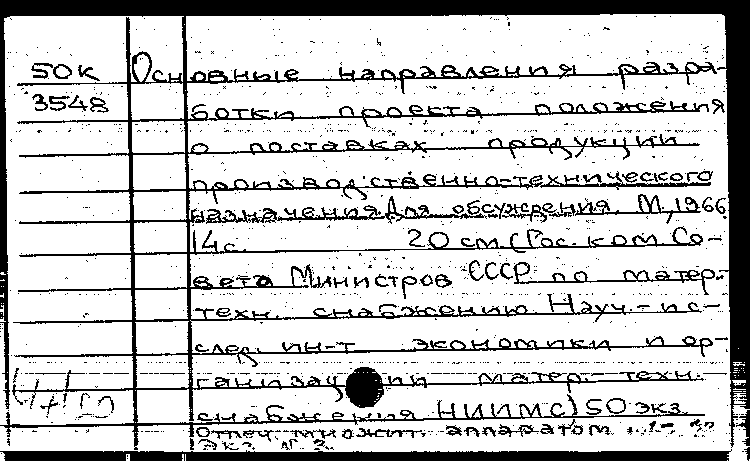 50к Основные направления разра-
3548 ботки проекта положения
о поставках продукции
производственно-технического
назначения Для обсуждения. М., 1966
14с. 20 см (Гос. ком. Со-
вета Министров СССР по матер.-
техн. снабжению. Науч.-ис-
след. ин-т экономики и ор-
ганизации матер.-техн.
снабжения НИИМС) 50 экз.
Отпеч. множит. аппаратом
Экз. № 2.